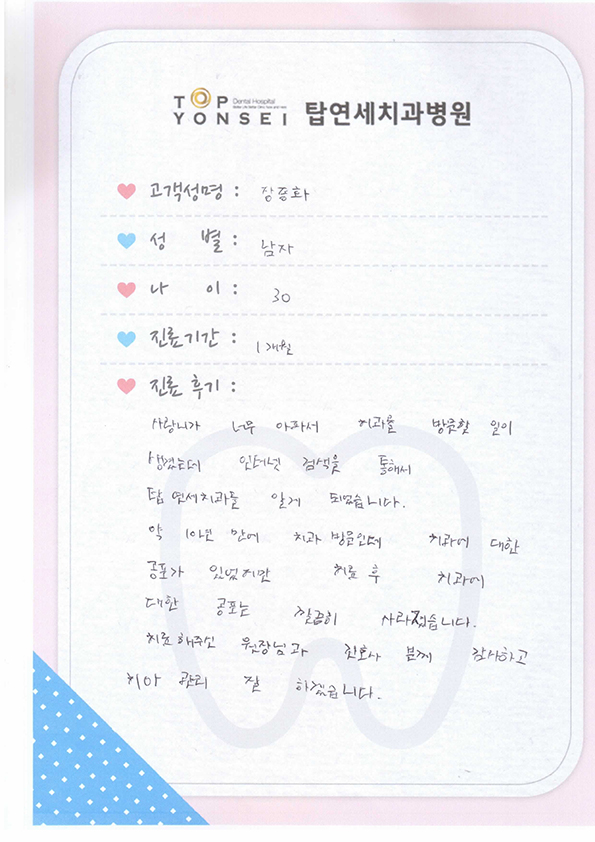 TOP Dental Hospital
YONSEI 탑연세치과병원
고객성명 : 장종화
성 별 : 남자
나 이 : 30
진료기간 : 1개월
진료 후기 :
사랑니가 너무 아파서 치과를 방문할 일이
생겼는데 인터넷 검색을 통해서
탑연세치과를 알게 되었습니다.
약 10년 만에 치과 방문인데 치과에 대한
공포가 있었지만 치료 후 치과에
대한 공포는 깔끔히 사라졌습니다.
치료해주신 원장님과 간호사 분께 감사하고
치아 관리 잘 하겠습니다.